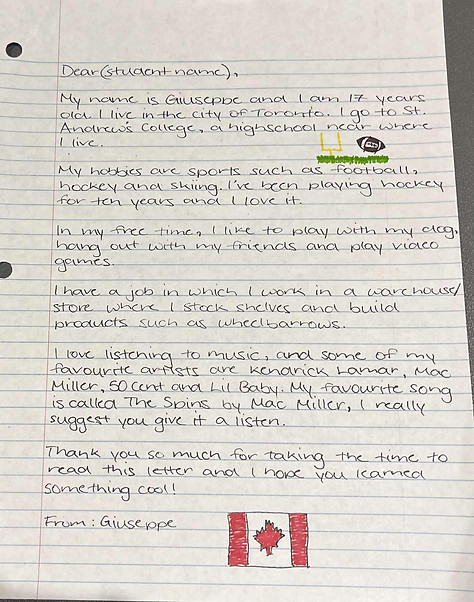 Dear (student name),
My name is Giuseppe and I am 17 years
old. I live in the city of Toronto. I go to St.
Andrew's College, a highschool near where
I live.
My hobbies are sports such as football,
hockey and skiing. I've been playing hockey
for ten years and I love it.
In my free time, I like to play with my dog,
hang out with my friends and play video
games.
I have a job in which I work in a warehouse/
store where I stock shelves and build
products such as wheelbarrows.
I love listening to music, and some of my
favourite artists are Kendrick Lamar, Mac
Miller, 50 cent and Lil Baby. My favourite song
is called The Spins by Mac Miller, I really
suggest you give it a listen.
Thank you so much for taking the time to
read this letter and I hope you learned
something cool!
From: Giuseppe